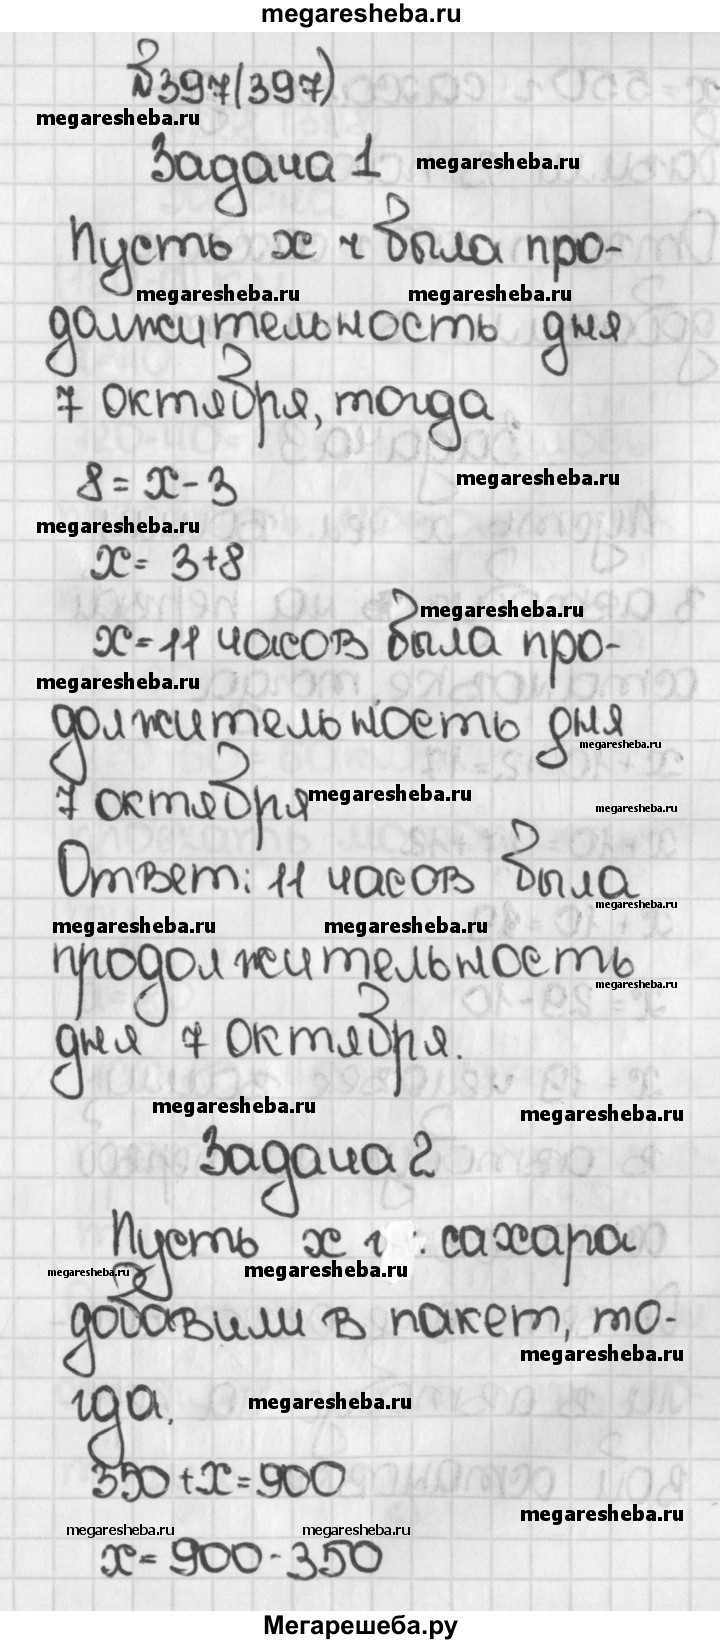 megaresheba.ru
№397(397)
megaresheba.ru
Задача 1 megaresheba.ru
Пусть x ч была про-
megaresheba.ru megaresheba.ru
должительность дня
7 октября, тогда
8 = x - 3 megaresheba.ru
megaresheba.ru
x = 3+8
megaresheba.ru
x = 11 часов была про-
megaresheba.ru
должительность дня
megaresheba.ru
7 октября megaresheba.ru megaresheba.ru
Ответ: 11 часов была
megaresheba.ru
megaresheba.ru megaresheba.ru
продолжительность
megaresheba.ru
дня 7 октября.
megaresheba.ru megaresheba.ru
Задача 2
Пусть x г сахара
megaresheba.ru megaresheba.ru
добавили в пакет, то-
megaresheba.ru
гда. megaresheba.ru
350 + x = 900
megaresheba.ru
megaresheba.ru megaresheba.ru
x = 900 - 350
Мегарешеба.ру